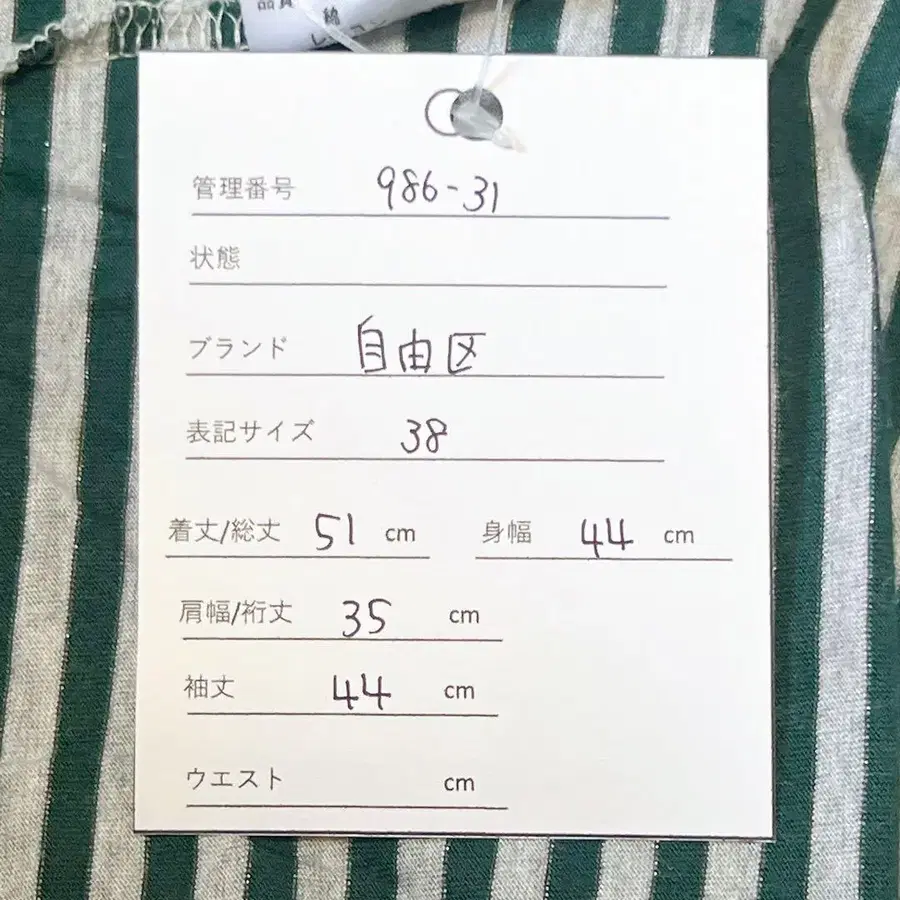 品質
綿
レーヨン
管理番号 986-31
状態
ブランド 自由区
表記サイズ 38
着丈/総丈 51 cm 身幅 44 cm
肩幅/裄丈 35 cm
袖丈 44 cm
ウエスト cm